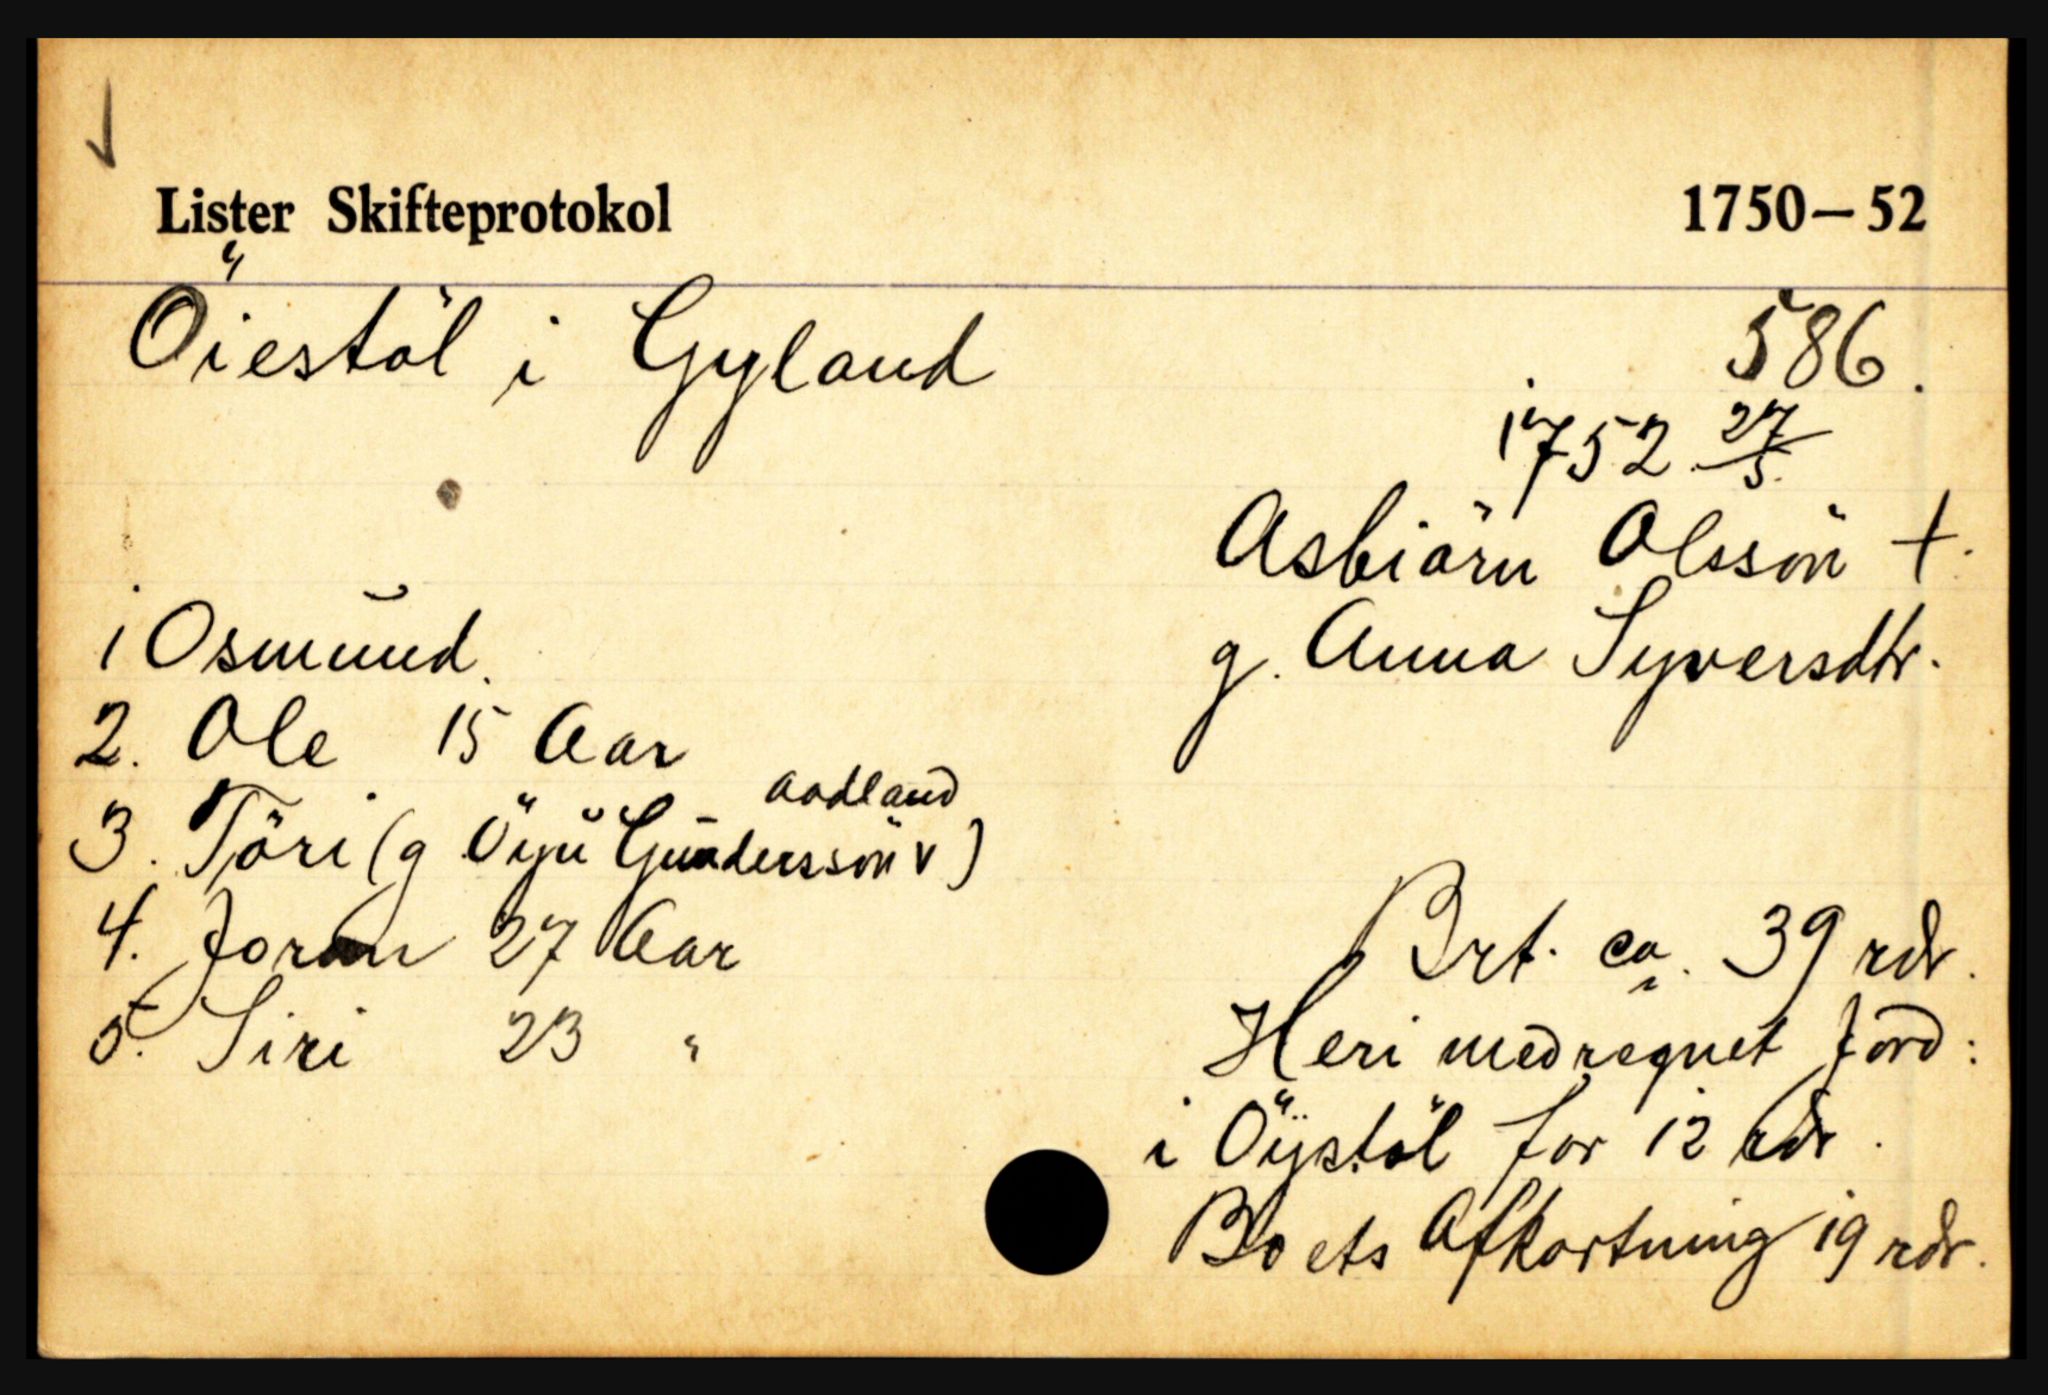 Lister Skifteprotokol 1750–52
Öiestöl i Gyland 586.
1752 27/5.
Asbiörn Olssön †.
g. Anna Syversdtr.
1 Osmund.
2. Ole 15 Aar
3. Töri (g Öyu Gunderssön v Aadland)
4. Joran 27 Aar
5. Siri 23 "
Brt. ca. 39 rdr.
Heri medregnet Jord:
i Öystöl for 12 rdr.
Boets Afkortning 19 rdr.